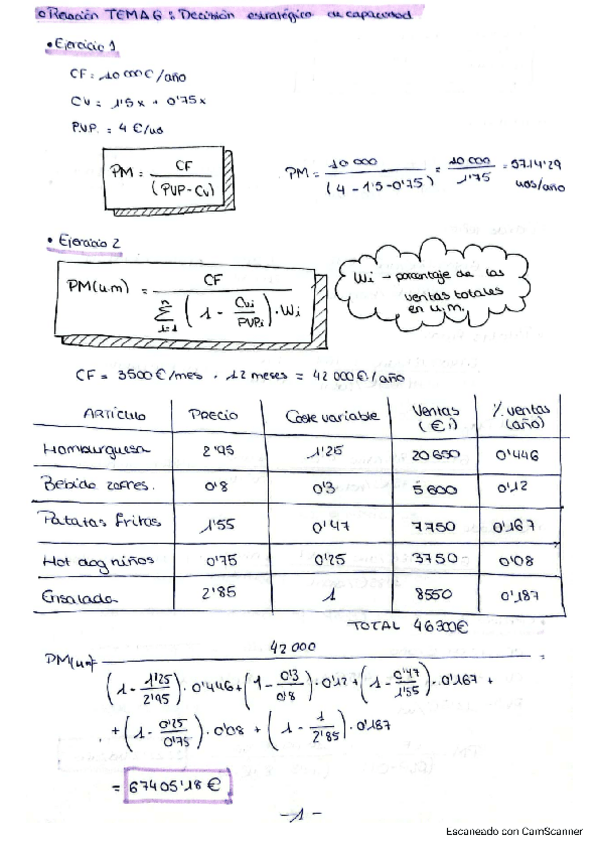 Relación TEMA 6: Decisión estratégica de capacidad
• Ejercicio 1
CF = 10 000 €/año
CV = 1'5x + 0'75x
P.V.P. = 4 €/ud
PM = CF / (PVP - CV)
PM = 10 000 / (4 - 1'5 - 0'75) = 10 000 / 1'75 = 5714'29 uds/año
• Ejercicio 2
PM(u.m) = CF / ∑ⁿᵢ₌₁ (1 - Cvi / PVPi) · Wi
Wi - porcentaje de las
ventas totales
en u.m.
CF = 3500€/mes · 12 meses = 42 000 €/año
ARTÍCULO PRECIO Coste variable Ventas (€) % ventas (año)
Hamburguesa 2'95 1'25 20 650 0'446
Bebida 0'8 0'3 5 600 0'12
Patatas fritas 1'55 0'47 7750 0'167
Hot dog niños 0'75 0'25 3750 0'08
Ensalada 2'85 1 8550 0'187
TOTAL 46300€
PM(um) = 42 000 / (1 - 1'25 / 2'95) · 0'446 + (1 - 0'3 / 0'8) · 0'12 + (1 - 0'47 / 1'55) · 0'167 +
+ (1 - 0'25 / 0'75) · 0'08 + (1 - 1 / 2'85) · 0'187 =
= 67405'18 €
-1-
Escaneado con CamScanner